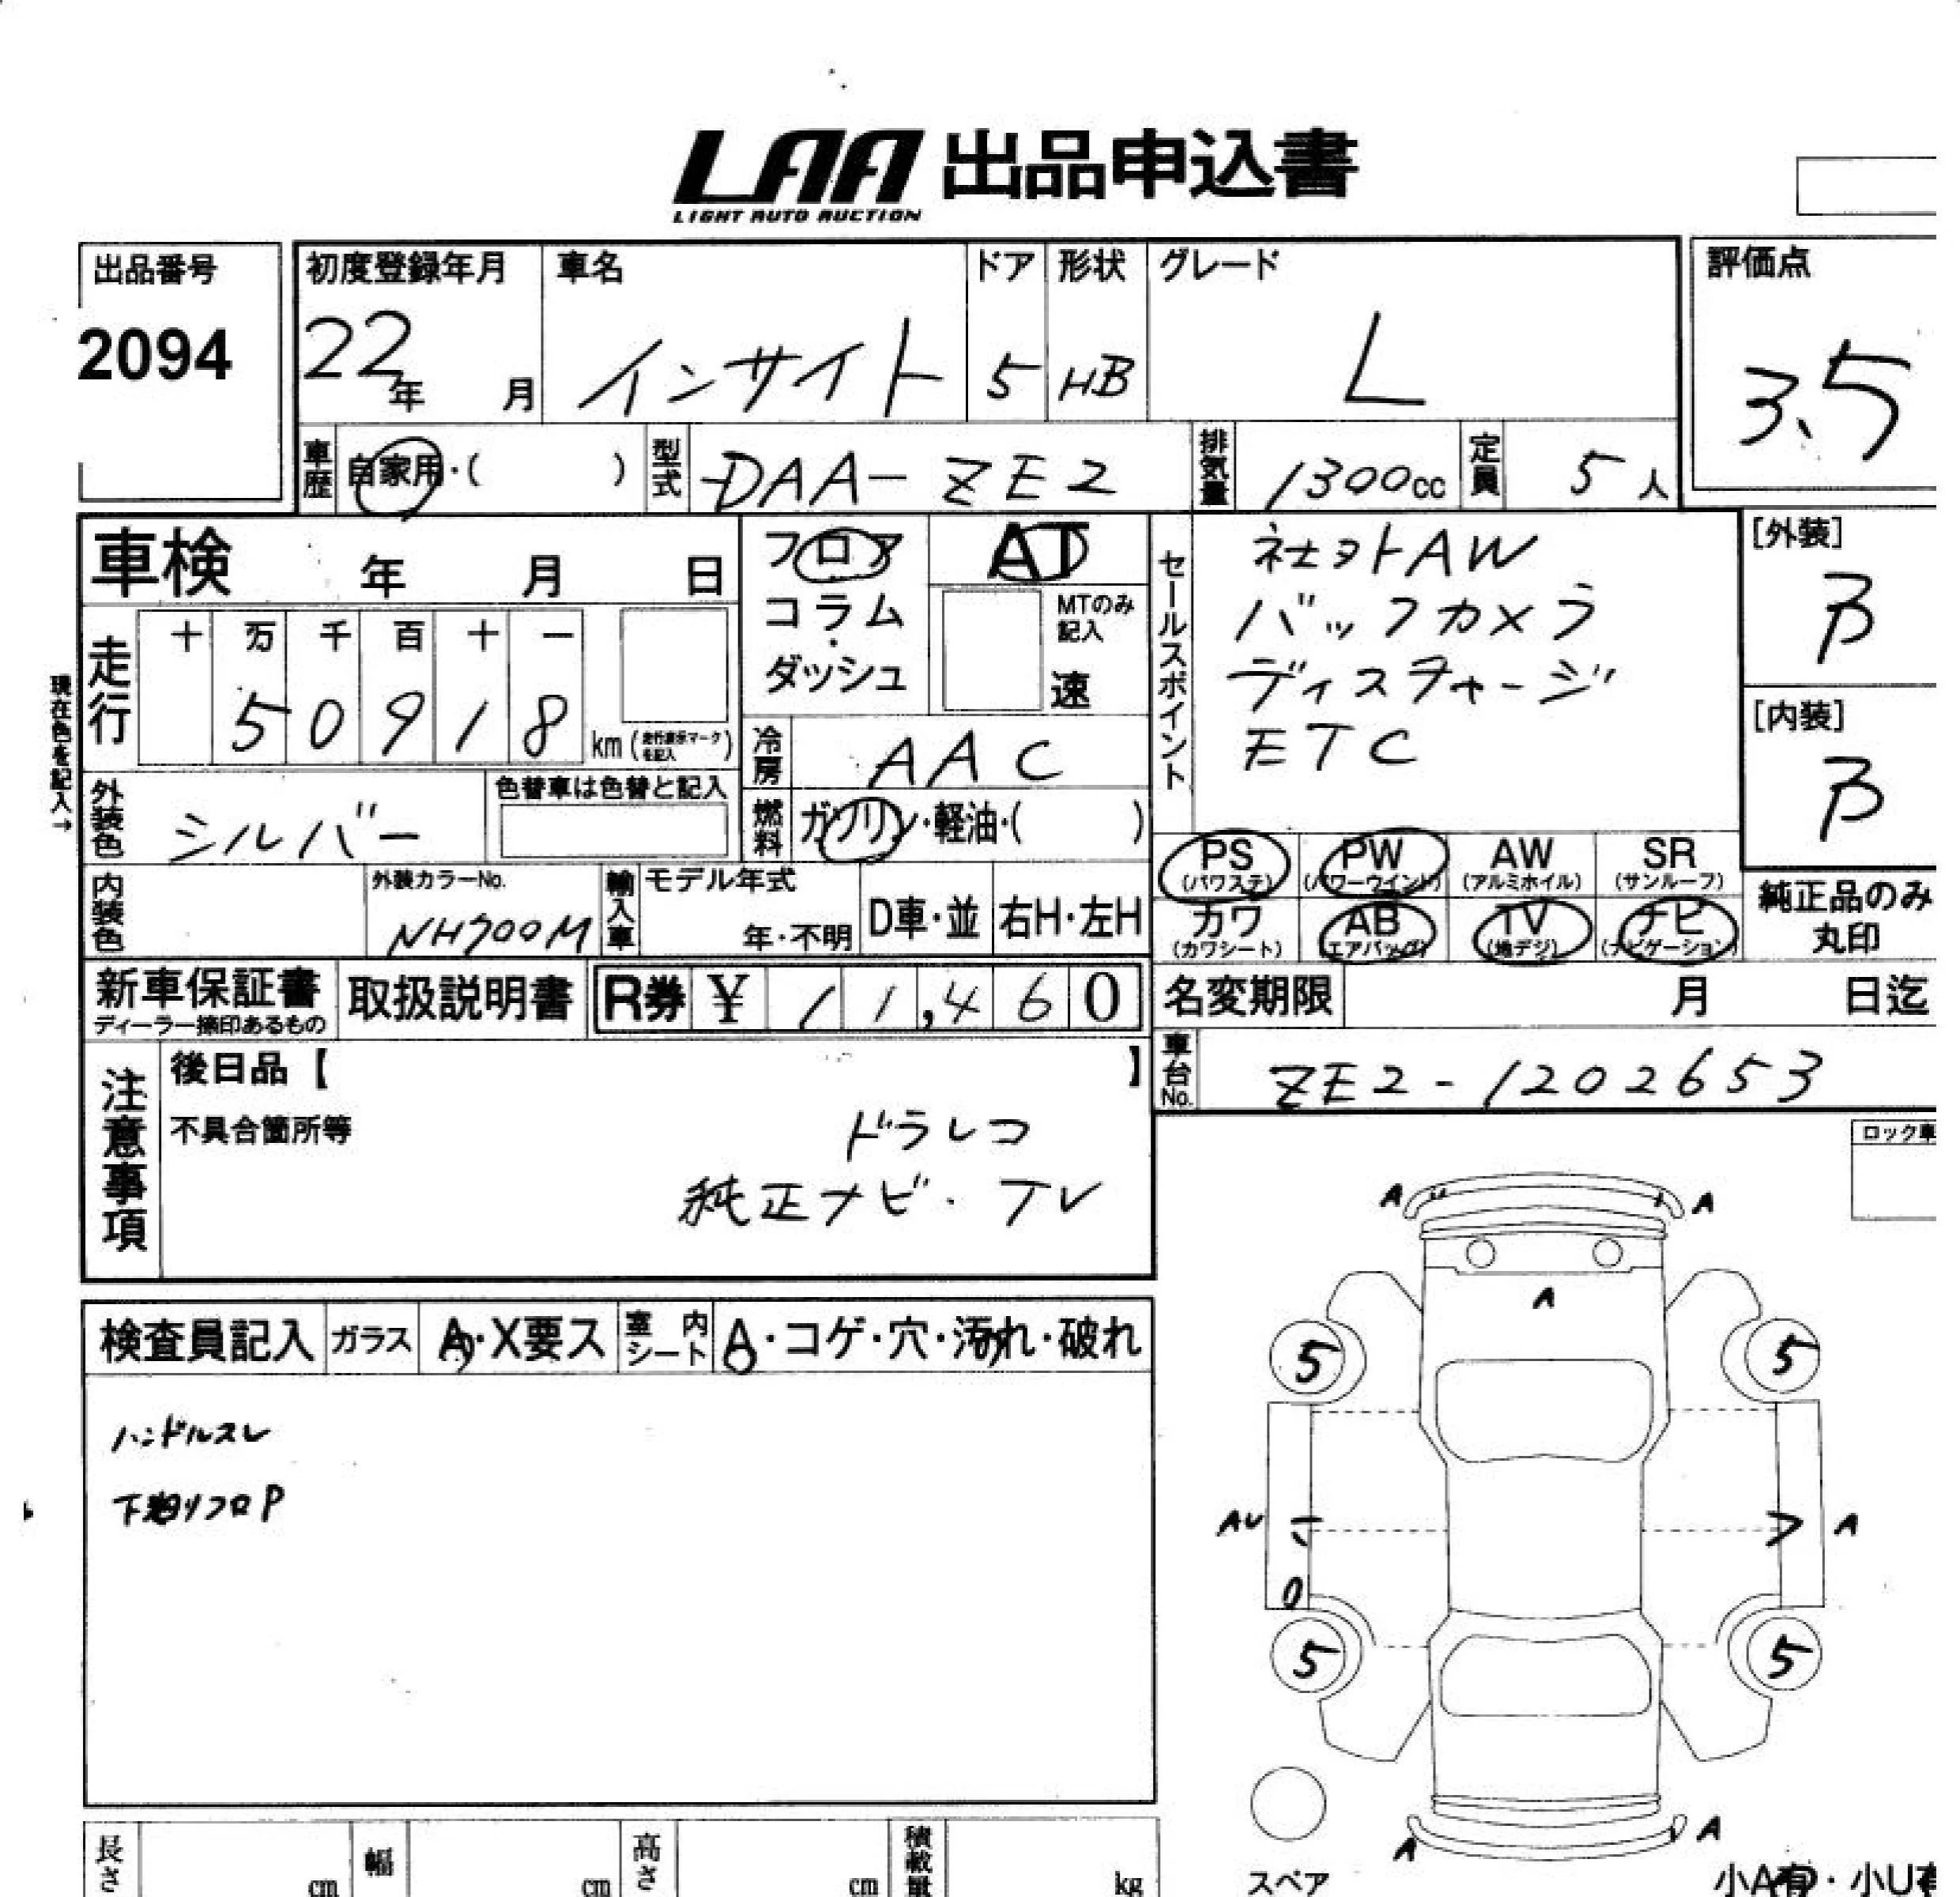 LAA 出品申込書
LIGHT AUTO AUCTION
出品番号
2094
初度登録年月
22年 月
車名
インサイト
ドア
5
形状
HB
グレード
L
評価点
3.5
車歴 自家用・( )
型式 DAA-ZE2
排気量 1300cc
定員 5人
車検 年 月 日
フロア
コラム
・
ダッシュ
AT
MTのみ
記入
速
セールスポイント
社外AW
バックカメラ
ディスチャージ
ETC
[外装]
B
[内装]
B
現在色を記入→
走行
十 万 千 百 十 一
5 0 9 1 8 km (走行表示マークを記入)
冷房 AAC
外装色 シルバー
色替車は色替と記入
燃料 ガソリン・軽油・( )
内装色
外装カラーNo.
NH700M
輸入車
モデル年式
年・不明
D車・並
右H・左H
PS
(パワステ)
PW
(パワーウインド)
AW
(アルミホイル)
SR
(サンルーフ)
カワ
(カワシート)
AB
(エアバッグ)
TV
(地デジ)
ナビ
(ナビゲーション)
純正品のみ
丸印
新車保証書
ディーラー捺印あるもの
取扱説明書
R券 ¥ 11,460
名変期限 月 日迄
車台No. ZE2-1202653
注意事項
後日品【 】
不具合箇所等
ドラレコ
純正ナビ・TV
ロック車
検査員記入 ガラス A・X要ス 室内シート A・コゲ・穴・汚れ・破れ
ハンドルスレ
A A
A
5 5
AU A
5 5
A A
スペア
小A有・小U
長さ cm 幅 cm 高さ cm 積載量 kg